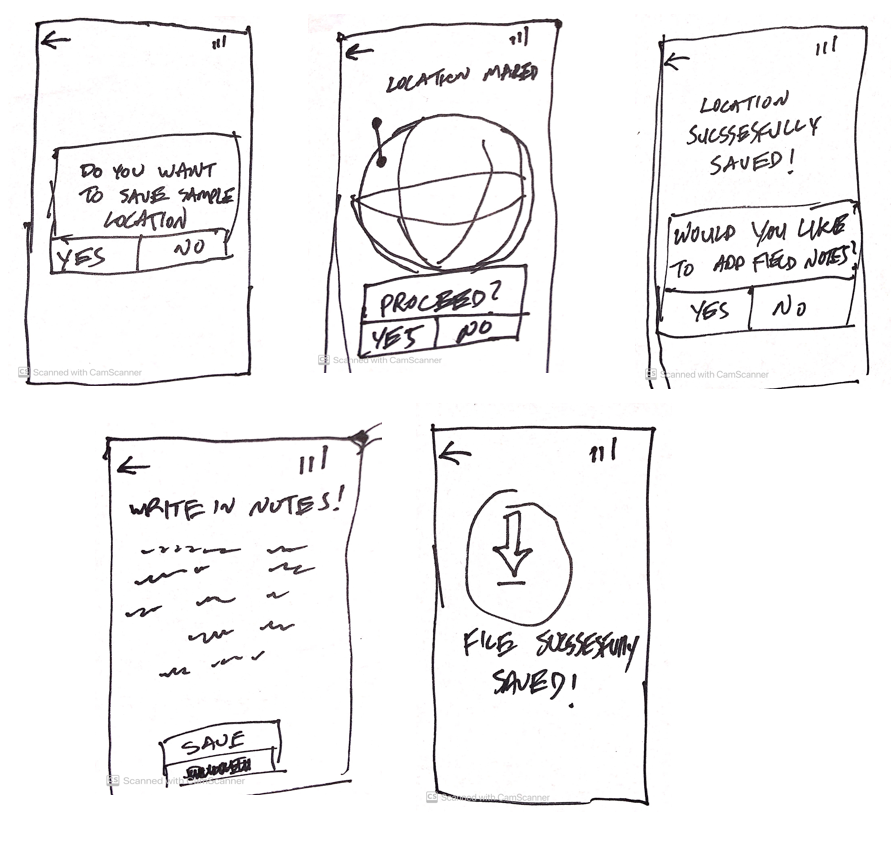 DO YOU WANT
TO SAVE SAMPLE
LOCATION
YES NO
Scanned with CamScanner
LOCATION MARED
PROCEED?
YES NO
Scanned with CamScanner
LOCATION
SUCSSESFULLY
SAVED!
WOULD YOU LIKE
TO ADD FIELD NOTES?
YES NO
CS Scanned with CamScanner
WRITE IN NOTES!
SAVE
CS Scanned with CamScanner
FILE SUCSSESFULLY
SAVED!
CS Scanned with CamScanner